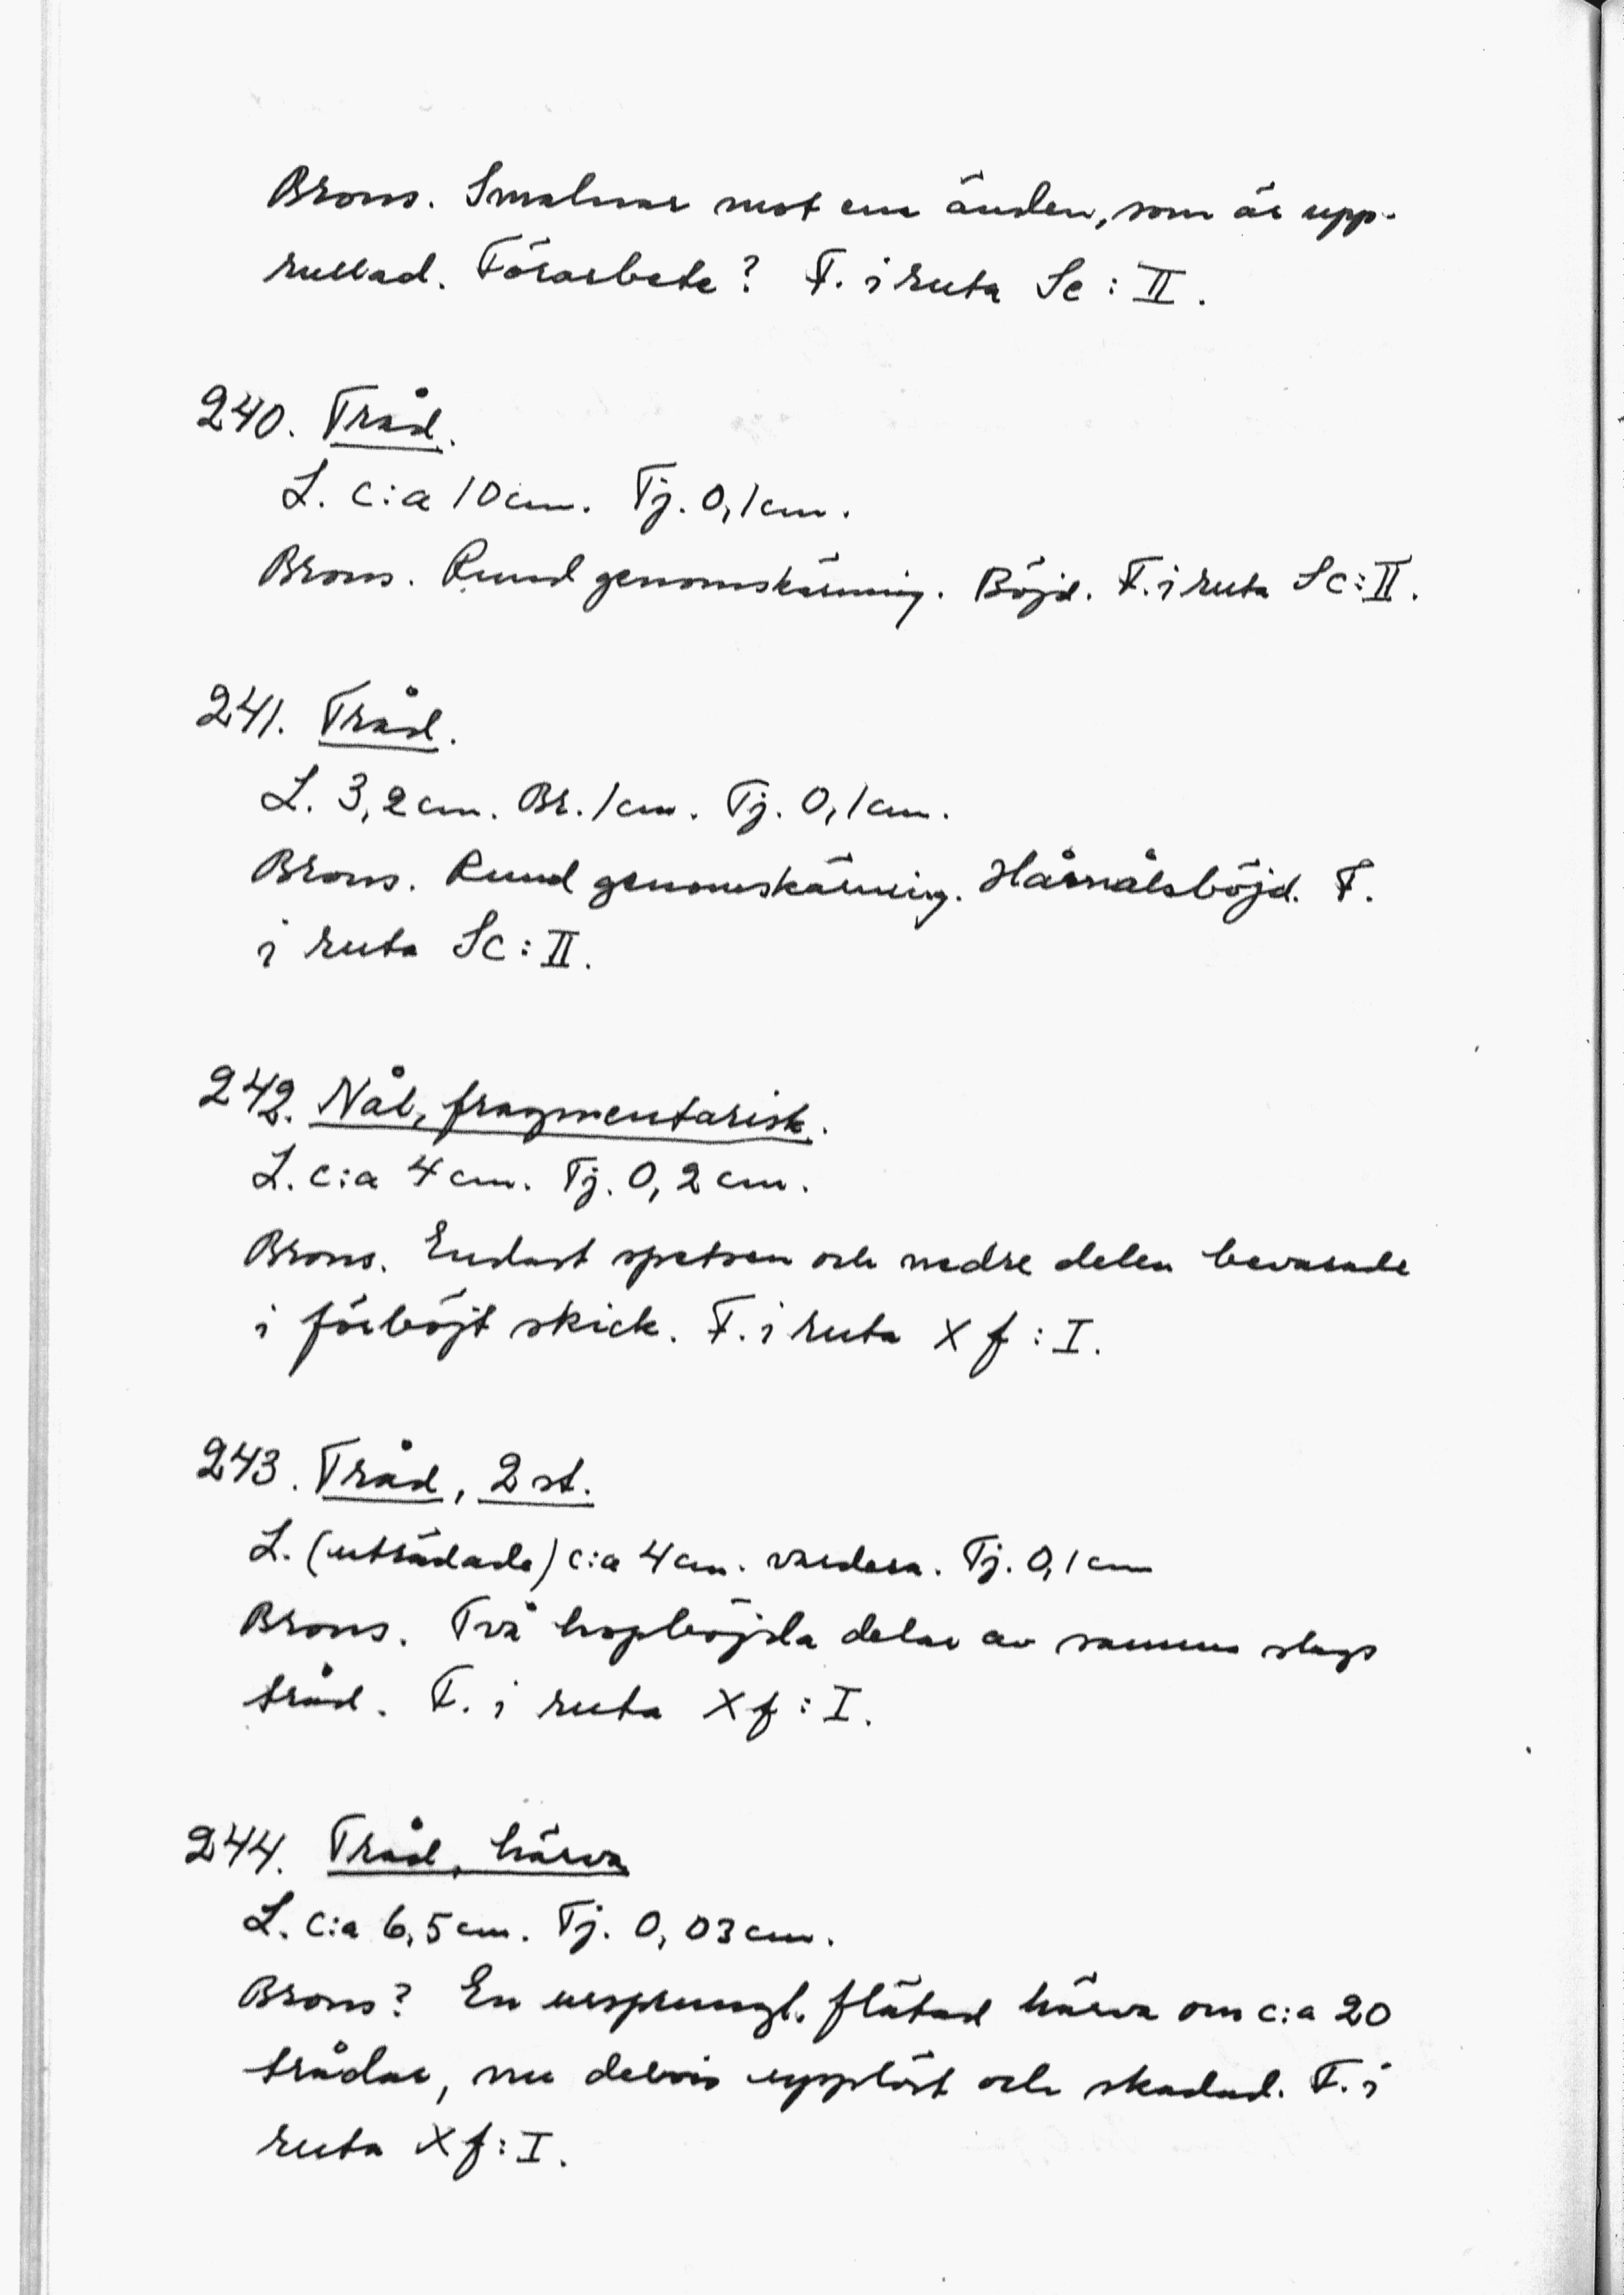 Brons. Smalnar mot ena änden, som är upp-
rullad. Förarbete? F. i ruta Sc: II.
240. Tråd.
L. c:a 10 cm. Tj. 0,1 cm.
Brons. Rund genomskärning. Böjd. F. i ruta Sc: II.
241. Tråd.
L. 3,2 cm. Br. 1 cm. Tj. 0,1 cm.
Brons. Rund genomskärning. Hårnålsböjd. F.
i ruta Sc: II.
242. Nål, fragmentarisk.
L. c:a 4 cm. Tj. 0,2 cm.
Brons. Endast spetsen och nedre delen bevarade
i förböjt skick. F. i ruta X f: I.
243. Tråd, 2 st.
L. (uträtade) c:a 4 cm. vardera. Tj. 0,1 cm
Brons. Två hopböjda delar av samma slags
tråd. F. i ruta X f: I.
244. Tråd, härva
L. c:a 6,5 cm. Tj. 0,03 cm.
Brons? En ursprungl. flätad härva om c:a 20
trådar, nu delvis upplöst och skadad. F. i
ruta X f: I.